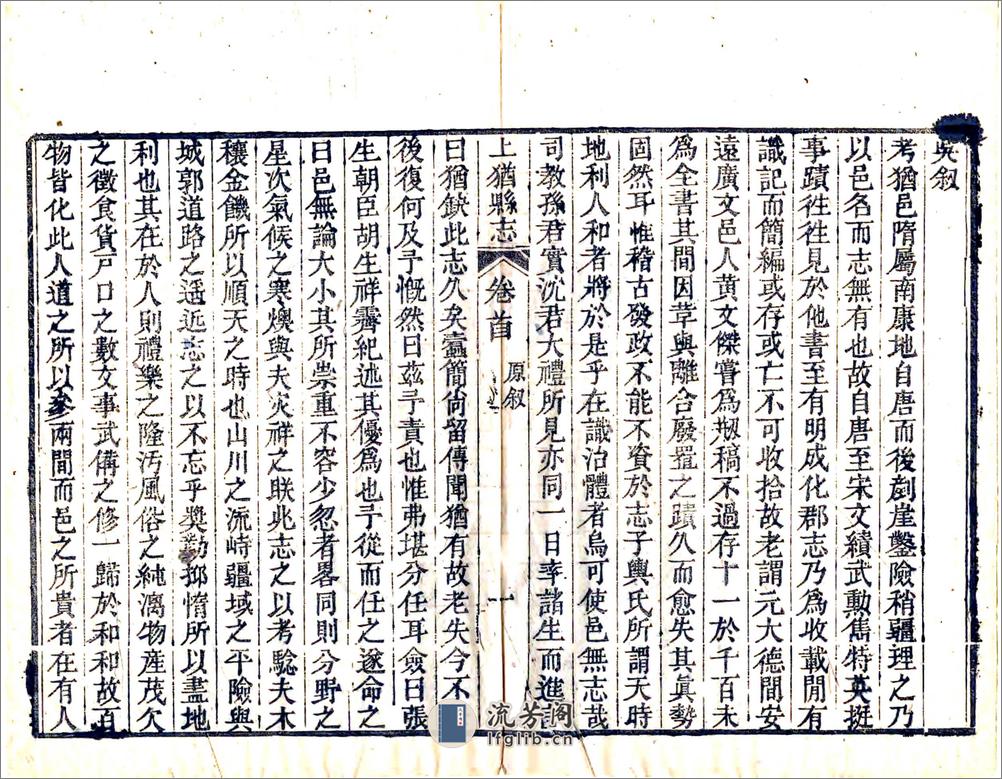 吳叙
考猶邑隋屬南康地自唐而後剷崖鑿險稍疆理之乃
以邑名而志無有也故自唐至宋文績武勳雋特英挺
事蹟徃徃見於他書至有明成化郡志乃爲收載閒有
識記而簡編或存或亡不可收拾故老謂元大德間安
遠廣文邑人黃文傑嘗爲剏稿不過存十一於千百未
爲全書其間因革與離合廢置之蹟久而愈失其眞勢
固然耳惟稽古發政不能不資於志子輿氏所謂天時
地利人和者將於是乎在識治體者烏可使邑無志哉
司教孫君實沈君大禮所見亦同一日率諸生而進請
上猶縣志
卷首
原叙
一
曰猶缺此志久矣蠹簡尙留傳聞猶有故老失今不
後復何及予慨然曰茲予責也惟弗堪分任耳僉曰張
生朝臣胡生祥霽紀述其優爲也予從而任之遂命之
曰邑無論大小其所崇重不容少忽者畧同則分野之
星次氣候之寒燠與夫灾祥之联此志之以考驗夫木
穰金饑所以順天之時也山川之流峙疆域之平險與
城郭道路之遥近志之以不忘乎奬勤抑惰所以盡地
利也其在於人則禮樂之隆汚風俗之純漓物産茂欠
之徵食貨戸口之數文事武備之修一歸於和和故百
物皆化此人道之所以叅兩間而邑之所貴者在有人
流芳阁
lfglib.cn